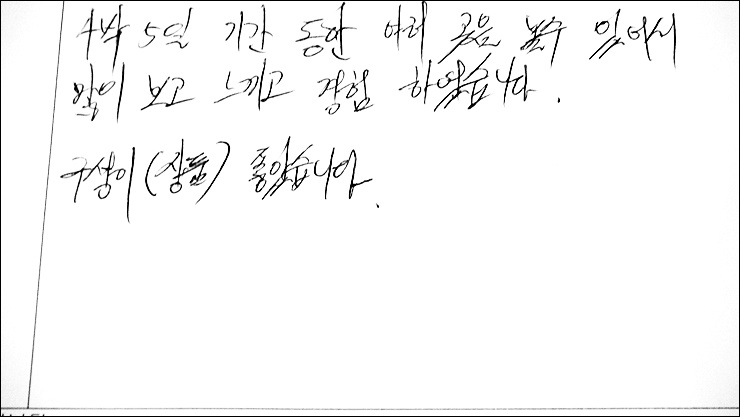 4박 5일 기간 동안 여러 곳을 볼수 있어서
많이 보고 느끼고 경험 하였습니다.
구성이 (상품) 좋았습니다.